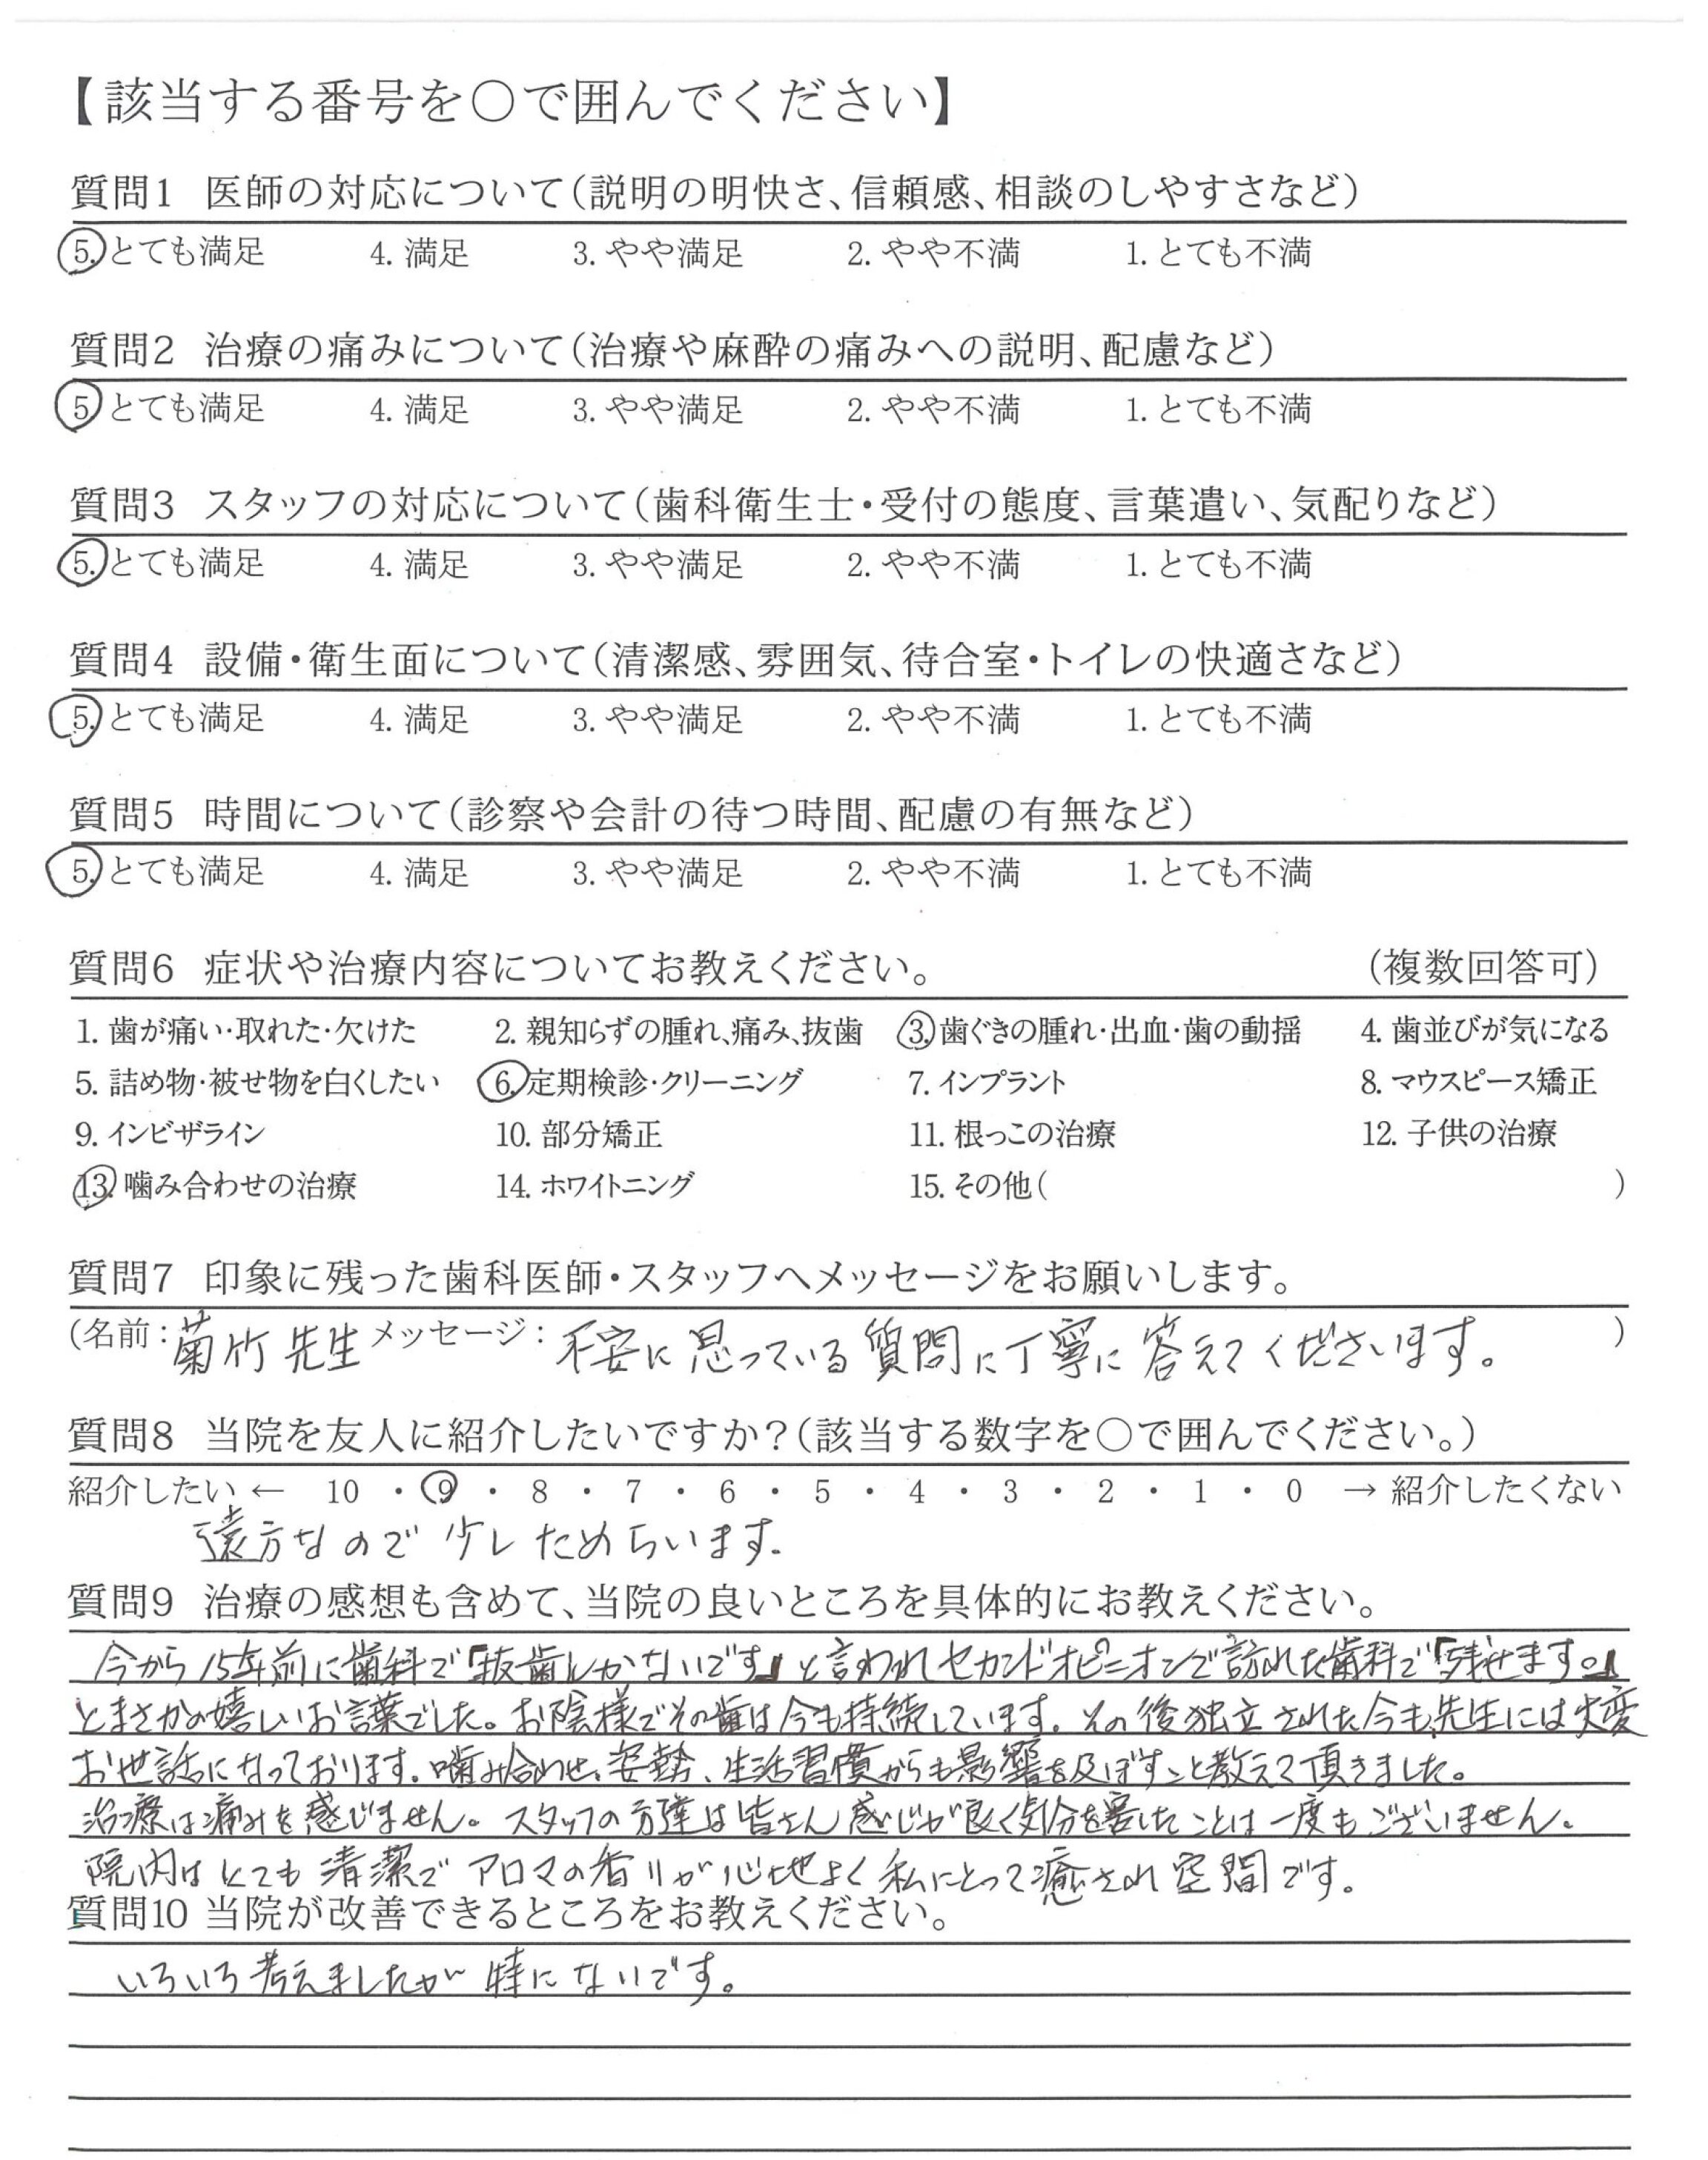 【該当する番号を○で囲んでください】
質問1 医師の対応について（説明の明快さ、信頼感、相談のしやすさなど）
5. とても満足 4. 満足 3. やや満足 2. やや不満 1. とても不満
質問2 治療の痛みについて（治療や麻酔の痛みへの説明、配慮など）
5 とても満足 4. 満足 3. やや満足 2. やや不満 1. とても不満
質問3 スタッフの対応について（歯科衛生士・受付の態度、言葉遣い、気配りなど）
5. とても満足 4. 満足 3. やや満足 2. やや不満 1. とても不満
質問4 設備・衛生面について（清潔感、雰囲気、待合室・トイレの快適さなど）
5. とても満足 4. 満足 3. やや満足 2. やや不満 1. とても不満
質問5 時間について（診察や会計の待つ時間、配慮の有無など）
5. とても満足 4. 満足 3. やや満足 2. やや不満 1. とても不満
質問6 症状や治療内容についてお教えください。 （複数回答可）
1. 歯が痛い・取れた・欠けた 2. 親知らずの腫れ、痛み、抜歯 3. 歯ぐきの腫れ・出血・歯の動揺 4. 歯並びが気になる
5. 詰め物・被せ物を白くしたい 6. 定期検診・クリーニング 7. インプラント 8. マウスピース矯正
9. インビザライン 10. 部分矯正 11. 根っこの治療 12. 子供の治療
13. 噛み合わせの治療 14. ホワイトニング 15. その他（ ）
質問7 印象に残った歯科医師・スタッフへメッセージをお願いします。
（名前：菊竹先生 メッセージ：不安に思っている質問に丁寧に答えてくださいます。 ）
質問8 当院を友人に紹介したいですか？（該当する数字を○で囲んでください。）
紹介したい ← 10 ・ 9 ・ 8 ・ 7 ・ 6 ・ 5 ・ 4 ・ 3 ・ 2 ・ 1 ・ 0 → 紹介したくない
遠方なので少しためらいます.
質問9 治療の感想も含めて、当院の良いところを具体的にお教えください。
今から15年前に歯科で「抜歯しかないです」と言われセカンドオピニオンで訪れた歯科で「残せます。」
とまさかの嬉しいお言葉でした。お陰様でその歯は今も持続しています。その後独立された今も先生には大変
お世話になっております。噛み合わせ、姿勢、生活習慣からも影響を及ぼすこと教えて頂きました。
治療は痛みを感じません。スタッフの方達は皆さん感じが良く気分を害したことは一度もございません。
院内はとても清潔でアロマの香りが心地よく私にとって癒され空間です。
質問10 当院が改善できるところをお教えください。
いろいろ考えましたが特にないです。